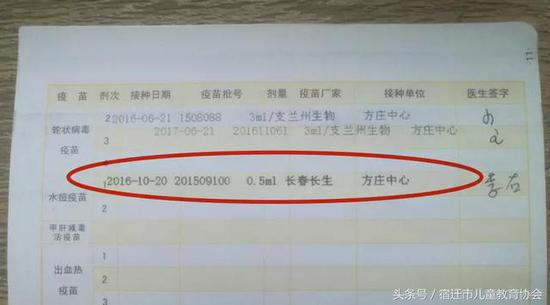 ·11·
疫 苗 剂次 接种日期 疫苗批号 剂量 疫苗厂家 接种单位 医生签字
2 2016-06-21 1508088 3ml/支 兰州生物 方庄中心
轮状病毒
疫苗
3 2017-06-21 201611061 3ml/支 兰州生物 方庄中心
水痘疫苗
1 2016-10-20 201509100 0.5ml 长春长生 方庄中心
2
甲肝减毒
活疫苗
出血热
疫苗
1
2
3
头条号 / 宿迁市儿童教育协会